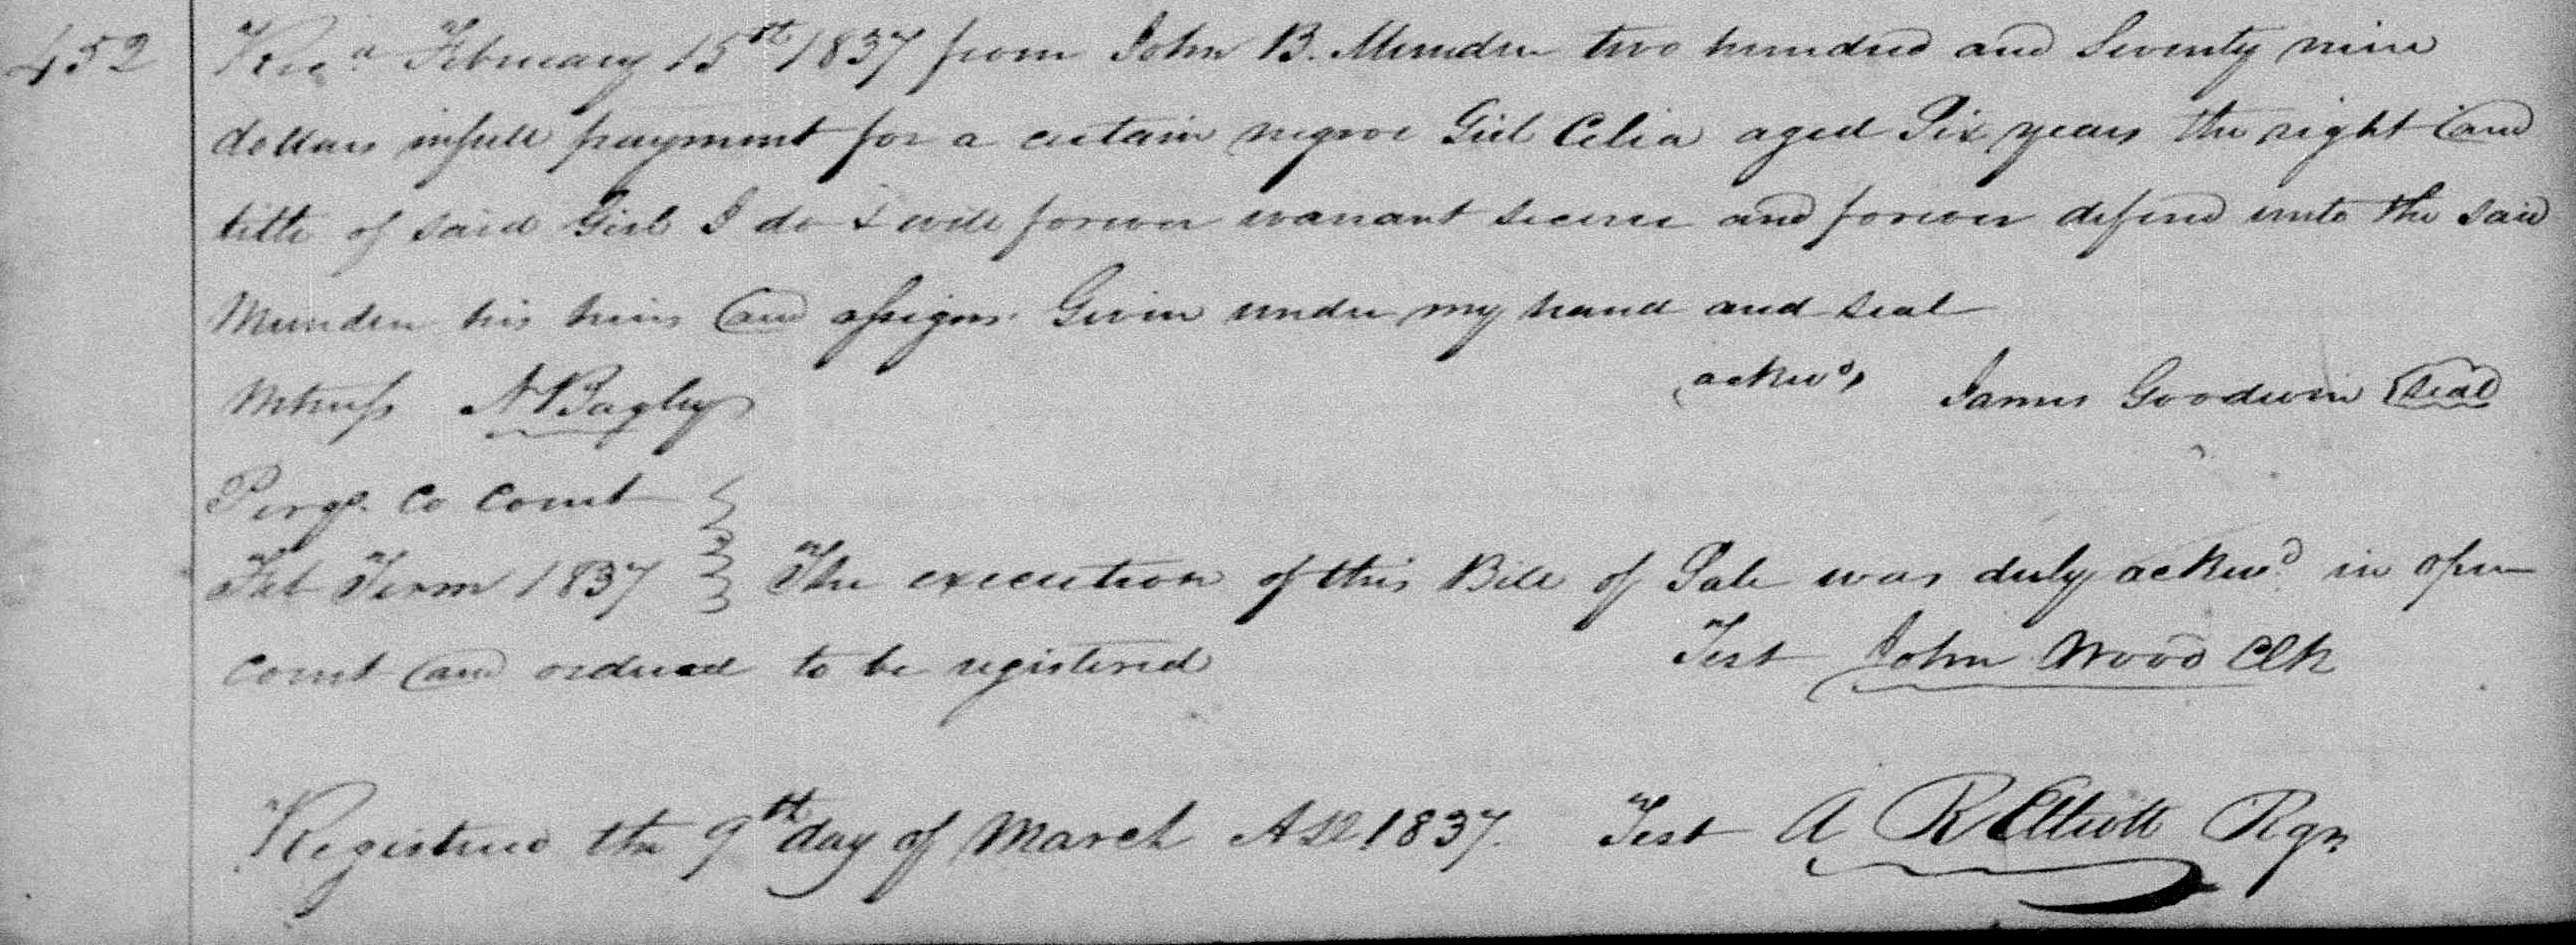 452 Rec.d February 15th 1837 from John B. Munden two hundred and Seventy nine
dollars infull payment for a certain negroe Girl Celia aged Six years the right and
title of said Girl I do & will forever warrant secure and forever defend unto the said
Munden his heirs and assigns. Given under my hand and seal
Witness N Bagley ackwd, James Goodwin Seal
Perqs. Co Court
Feb Term 1837 The execution of this Bill of Sale was duly ackwd in open
Court and ordered to be registered Test John Wood Clk
Registered the 9th day of March AD 1837. Test A R Elliott Rgr